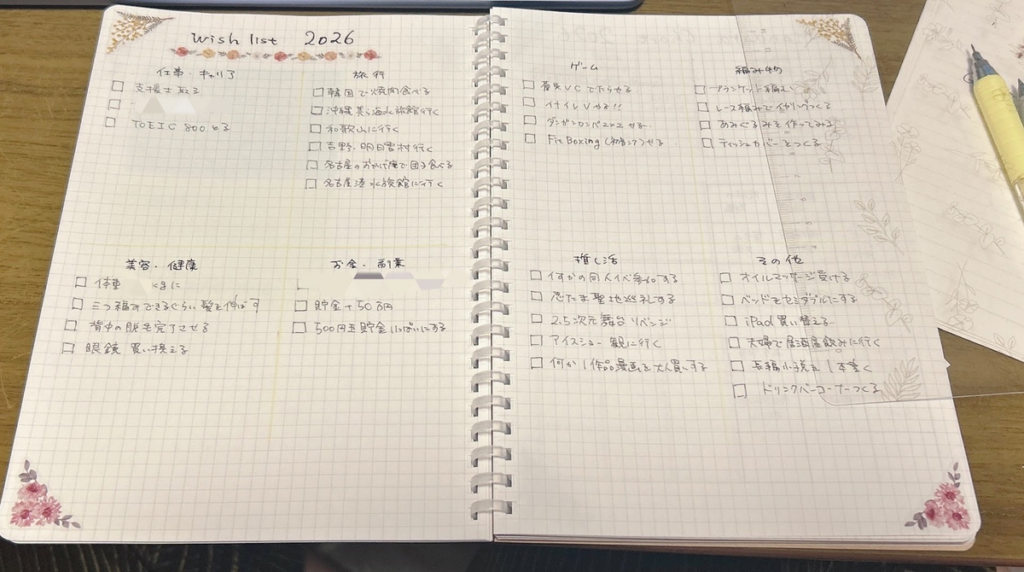 wish list 2026
仕事・キャリア
支援士取る
TOEIC 800とる
旅行
韓国で焼肉食べる
沖縄美ら海水族館行く
和歌山に行く
吉野、明日香村行く
名古屋のおかげ庵で団子食べる
名古屋港水族館に行く
美容・健康
体重 kgに
三つ編みできるぐらい髪を伸ばす
背中の脱毛完了させる
眼鏡買い換える
お金・副業
貯金+50万円
500円玉貯金いっぱいにする
ゲーム
VCでクリアする
Fit Boxing
編み物
ブランケットを編む
レース編みで つくる
あみぐるみを作ってみる
ティッシュカバーをつくる
推し活
何かの同人イベ参加する
忍たま聖地巡礼する
2.5次元舞台リベンジ
アイスショー観に行く
何か1作品漫画を大人買いする
その他
オイルマッサージ受ける
ベッドをセミダブルにする
iPad買い替える
夫婦で居酒屋飲みに行く
長編小説を1本書く
ドリンクバーコーナーつくる